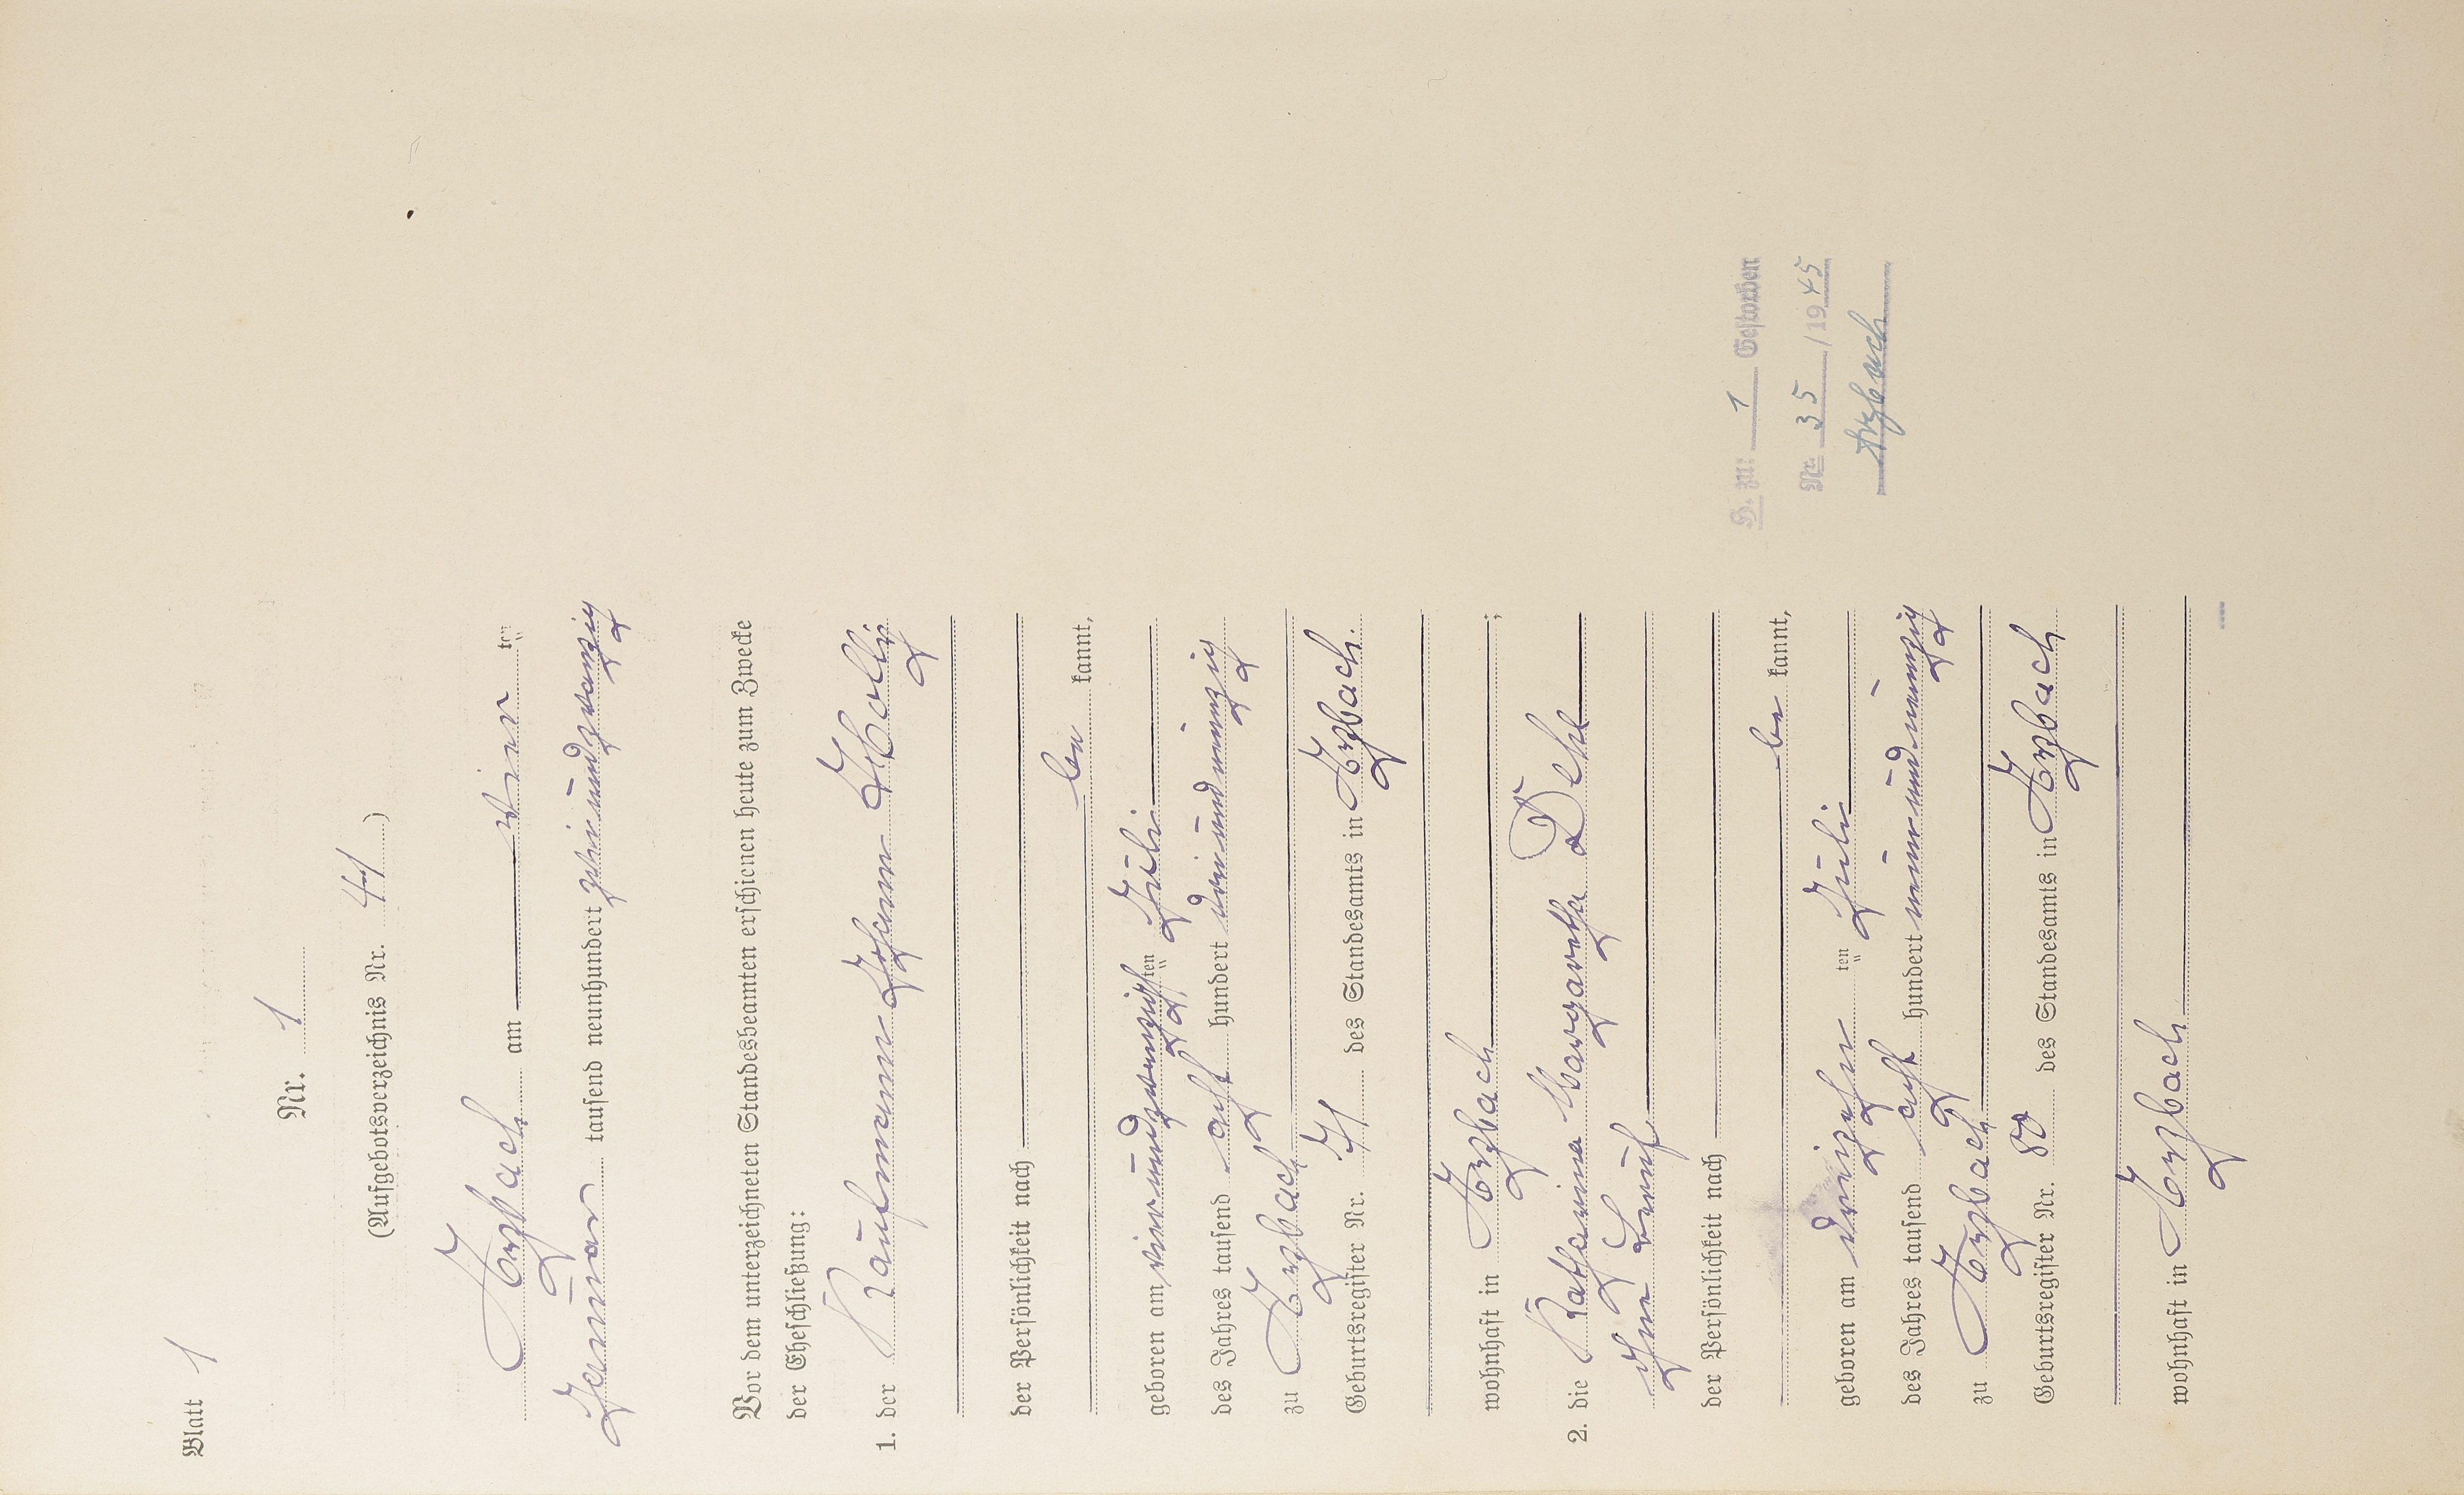 Blatt 1
Nr. 1
(Aufgebotsverzeichnis Nr. 41)
Arzbach am vier ten
Januar tausend neunhundert zweiundzwanzig
Vor dem unterzeichneten Standesbeamten erschienen heute zum Zwecke
der Eheschließung:
1. der Kaufmann Johann
der Persönlichkeit nach be kannt,
geboren am vierundzwanzigsten Juli
des Jahres tausend acht hundert dreiundneunzig
zu Arzbach
Geburtsregister Nr. 71 des Standesamts in Arzbach
wohnhaft in Arzbach;
2. die Katharina Margaretha Dehe
ohne Beruf
der Persönlichkeit nach be kannt,
geboren am dreizehn ten Juli
des Jahres tausend acht hundert neunundneunzig
zu Arzbach
Geburtsregister Nr. 80 des Standesamts in Arzbach
wohnhaft in Arzbach
H. zu: 1 Gestorben
Nr. 35 /1945
Arzbach